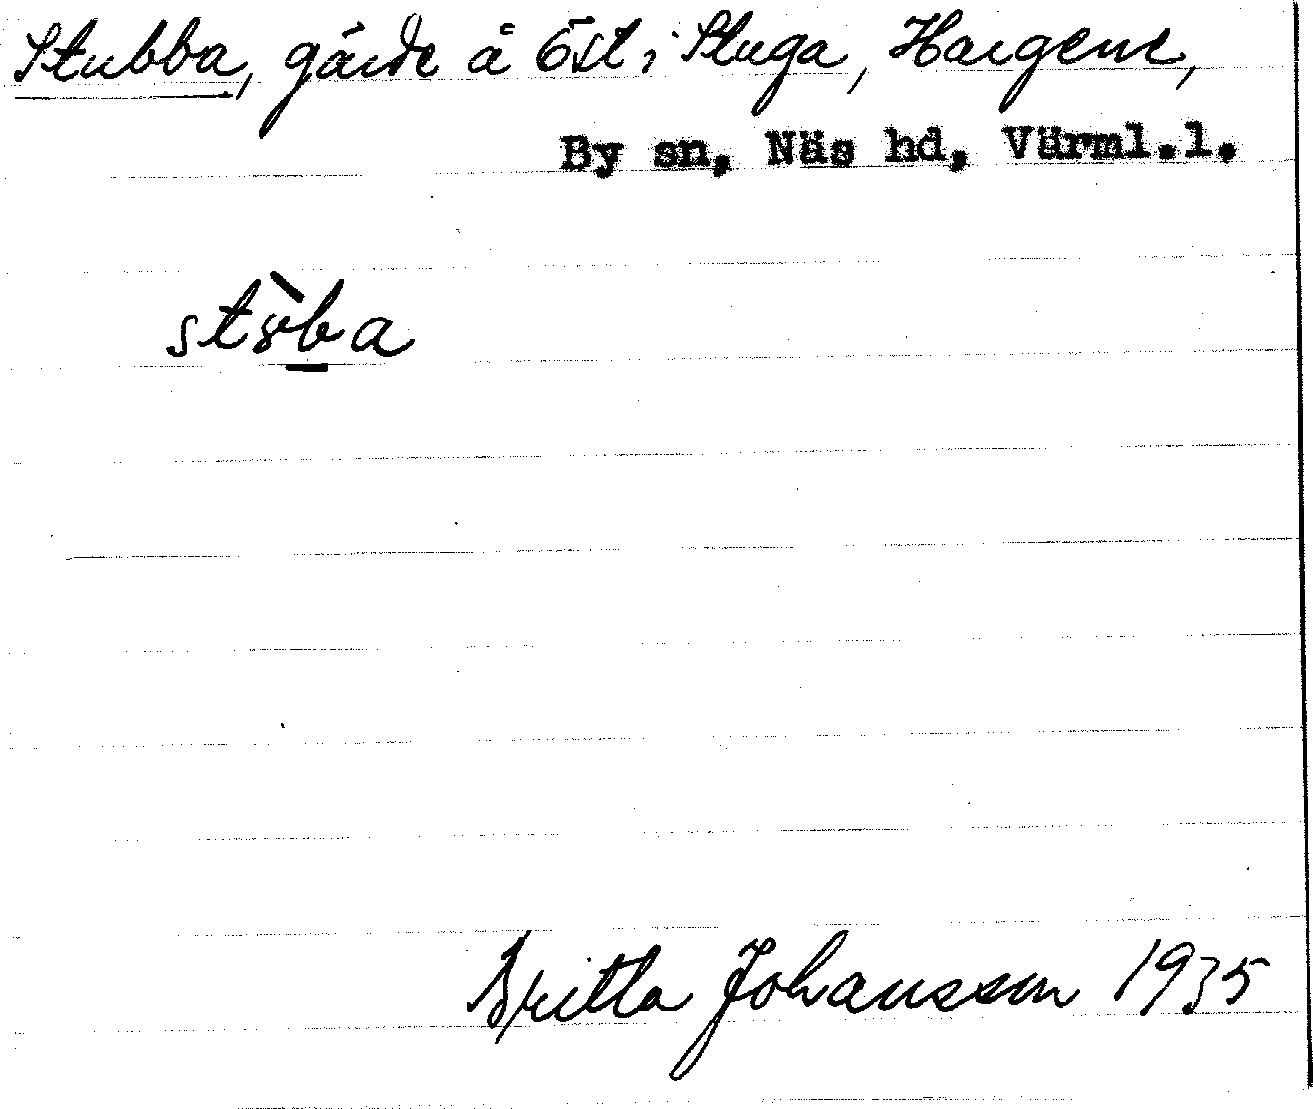 Stubba, gärde å Öst i Stuga, Hargene,
By sn, Näs hd, Värml.l.
Britta Johansson 1935